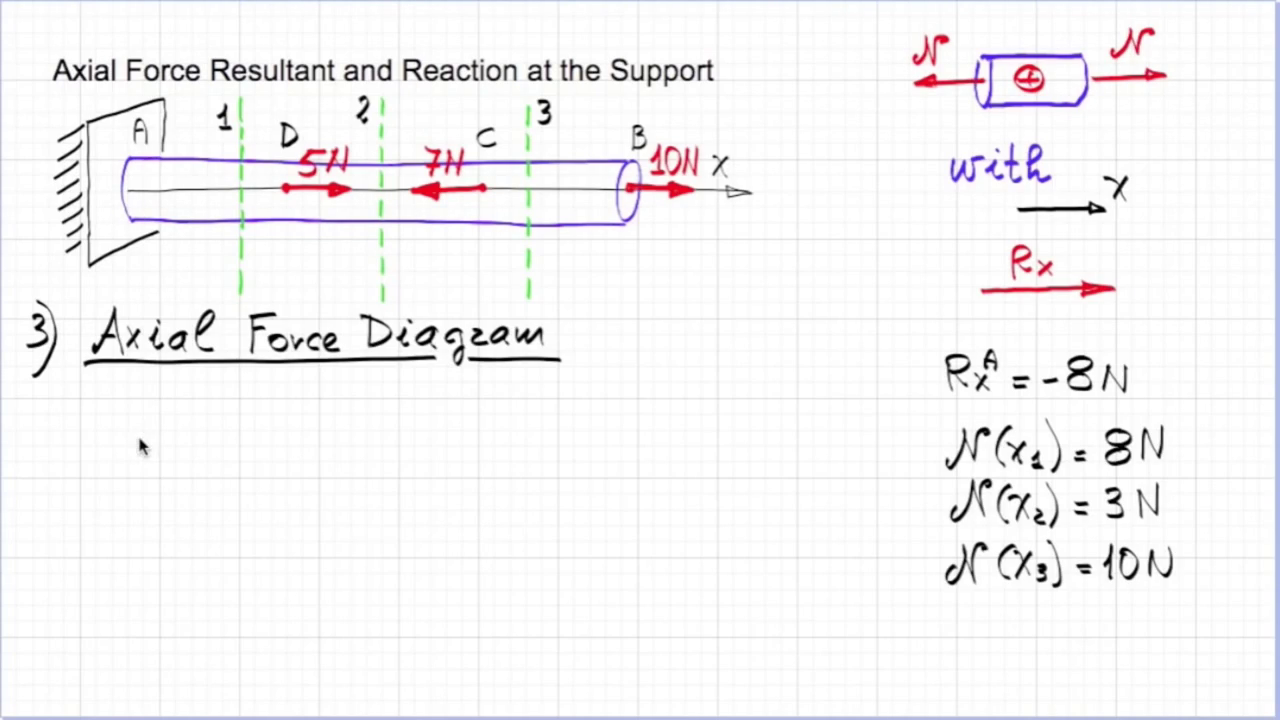 Axial Force Resultant and Reaction at the Support
A 1 D 2 C 3 B
5N 7N 10N X
3) Axial Force Diagram
N N
+
with
X
Rx
Rx^A = -8N
N(x1) = 8N
N(x2) = 3N
N(x3) = 10N